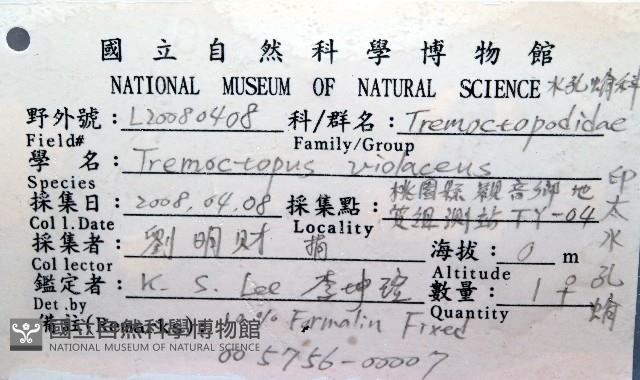 國立自然科學博物館
NATIONAL MUSEUM OF NATURAL SCIENCE 水孔蛸科
野外號：L20080408 科/群名：Tremoctopodidae
Field# Family/Group
學 名：Tremoctopus violaceus
Species
採集日：2008.04.08 採集點：桃園縣觀音鄉地
Coll.Date Locality 質組測站TY-04
採集者：劉明財 捐 海拔：0 m
Collector Altitude
鑑定者：K. S. Lee 李坤瑄 數量：1♀
Det.by Quantity
備註(Remarks)：10% Formalin Fixed
005756-00007
印太水孔蛸
國立自然科學博物館
NATIONAL MUSEUM OF NATURAL SCIENCE